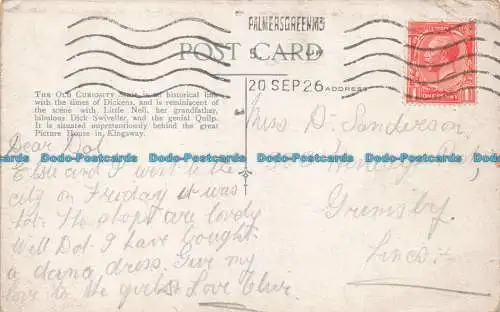 PALMERS GREEN N13
POST CARD
20 SEP 26
ADDRESS
THE OLD CURIOSITY is an historical link
with the times of Dickens, and is reminiscent of the
scene with Little Nell, her grandfather,
fabulous Dick Swiveller, and the genial Quilp.
It is situated unpretentiously behind the great
Picture House in Kingsway.
Dear Dot
Elsie and I went to the
city on Friday it was
hot. The shops are lovely
Well Dot I have bought
a dress. Give my
love to the girls Love
Miss D. Sanderson
Grimsby
Lincs
www.bolodo.co.uk
www.bolodo.co.uk
www.bolodo.co.uk